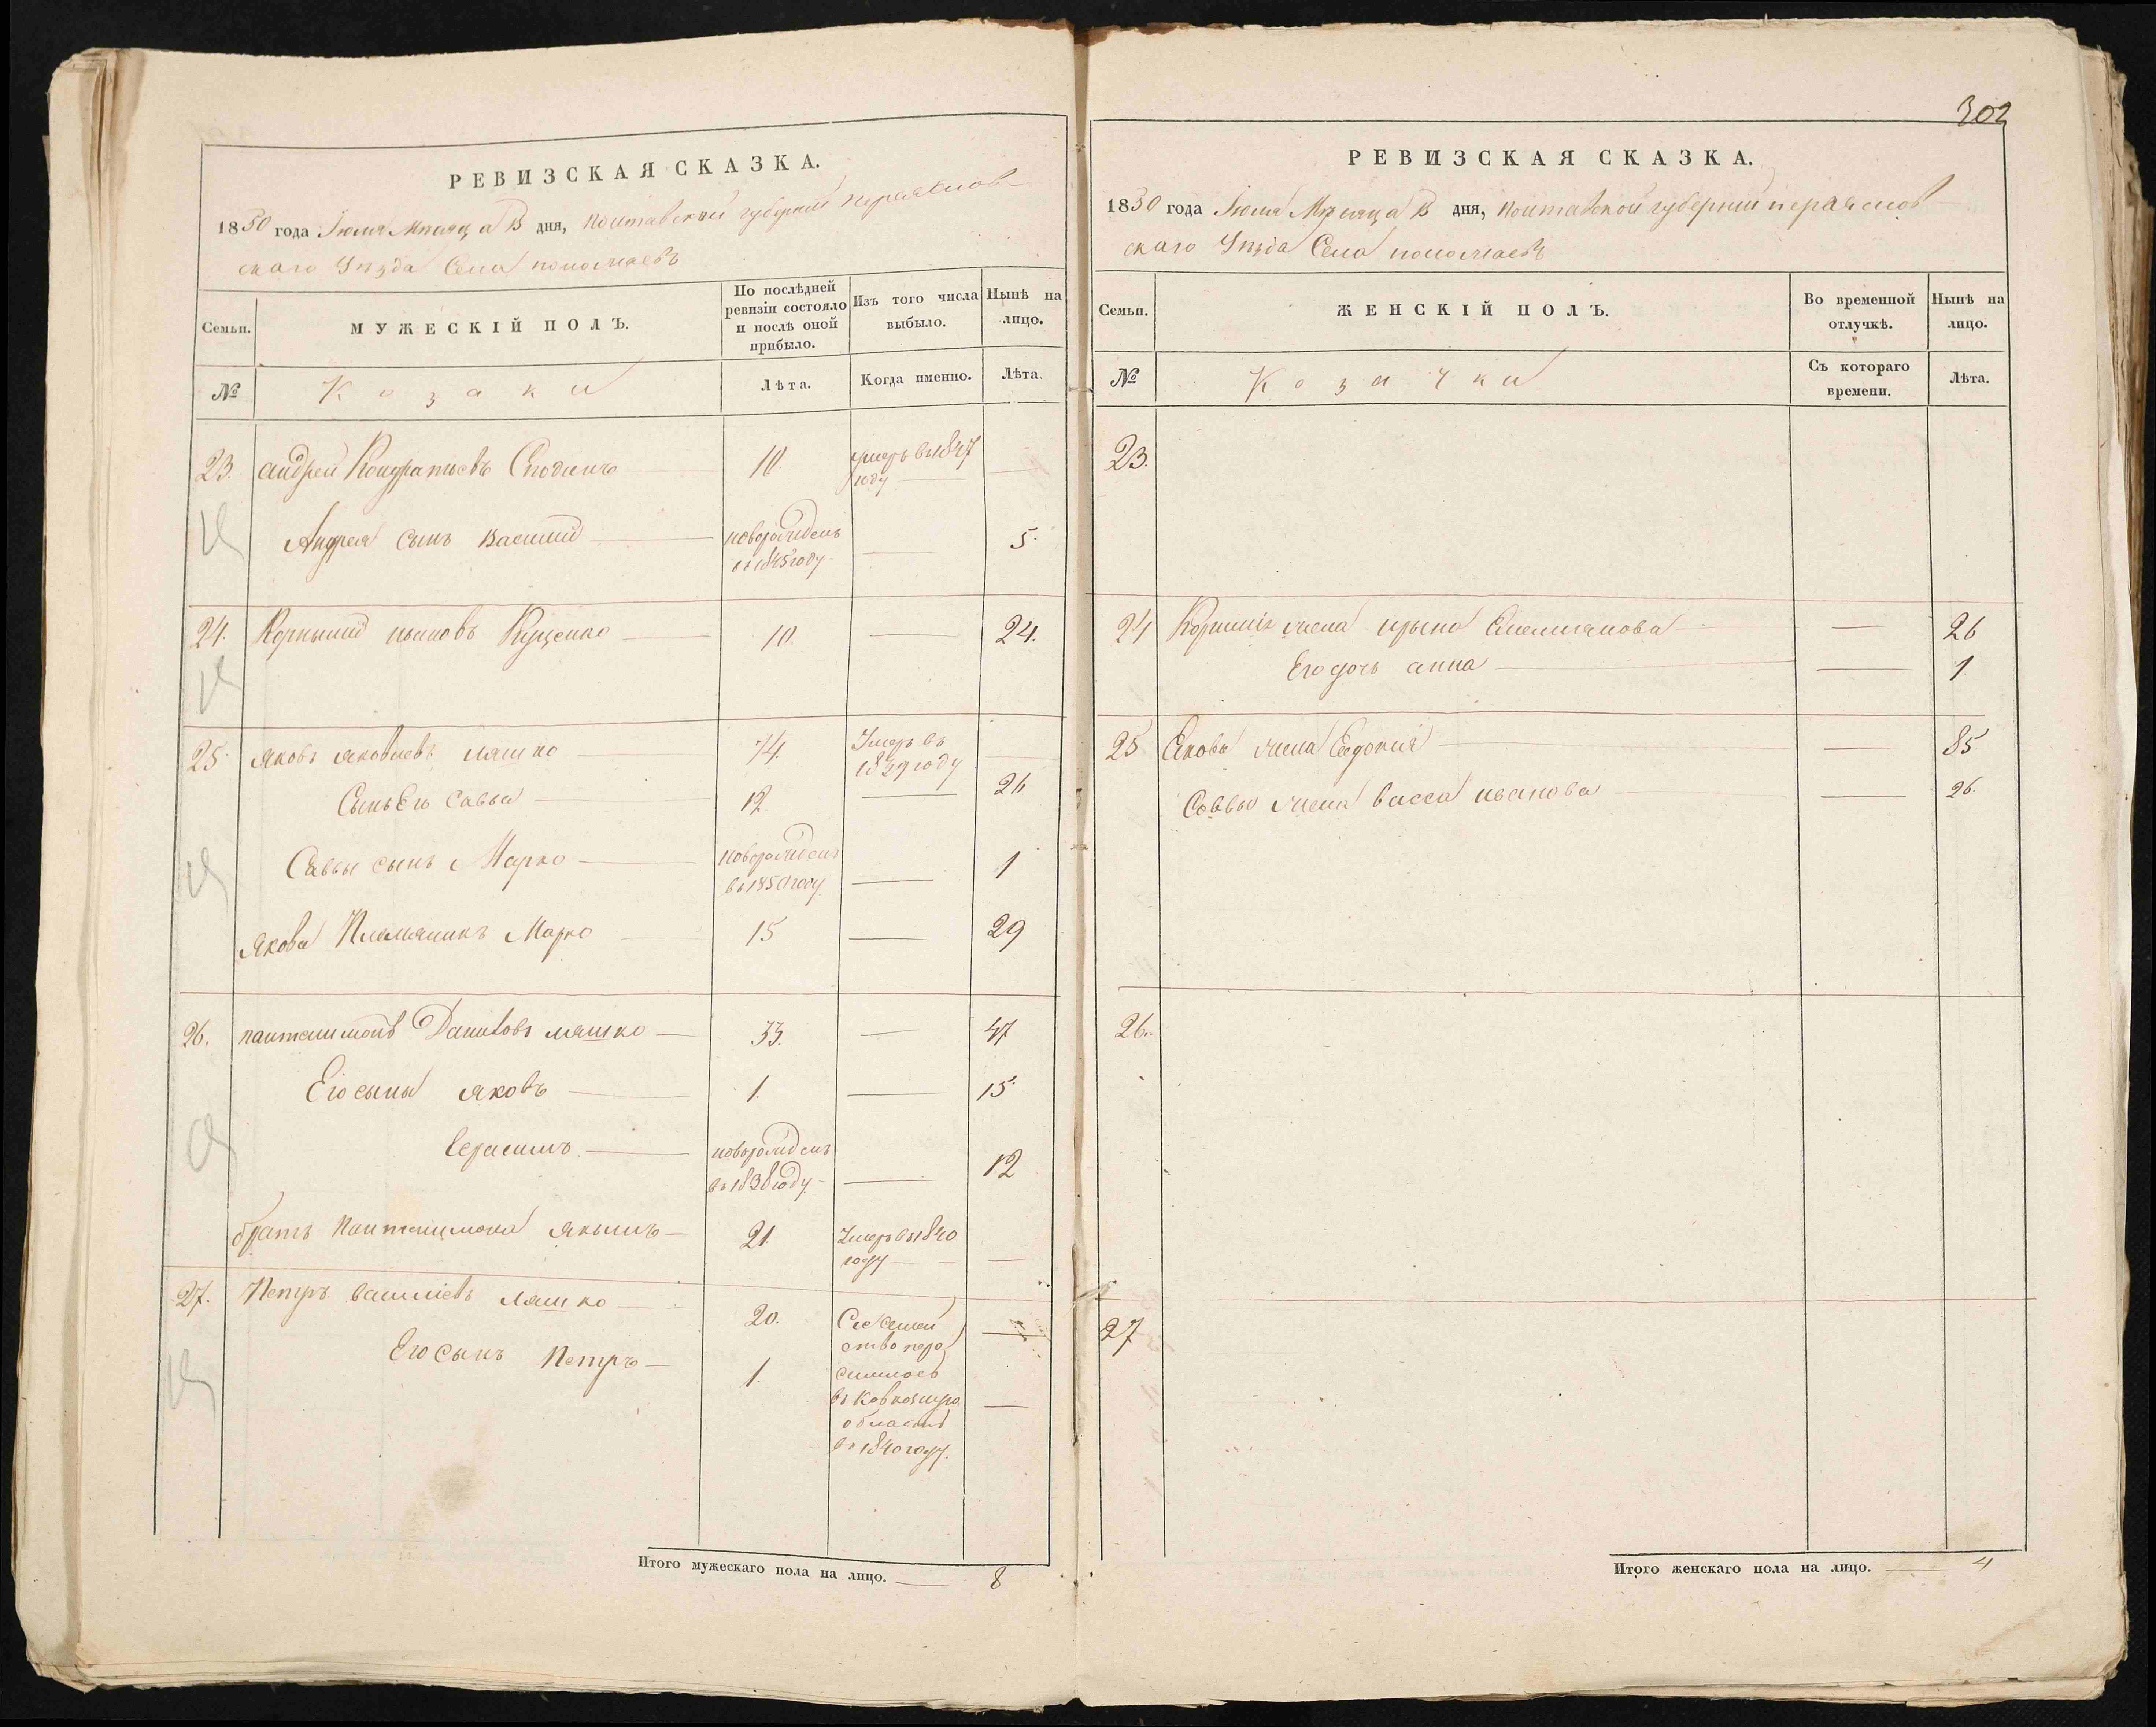 РЕВИЗСКАЯ СКАЗКА.
1850 года Іюля Мѣсяца 13 дня, Полтавской губерніи переяслов-
скаго Уѣзда Села
Семьи.
МУЖЕСКІЙ ПОЛЪ.
По послѣдней ревизіи состояло и послѣ оной прибыло.
Изъ того числа выбыло.
Нынѣ на лицо.
№
Козаки
Лѣта.
Когда именно.
Лѣта.
23. андрей Кондратьевъ 10. умеръ въ 1847 году —
Андрея сынъ Василій — новорожденъ въ 1845 году — 5.
24. Корнилій ивановъ Куценко — 10. — 24.
25. яковъ яковлевъ ляшко — 74. Умеръ въ 1839 году —
Сынъ Его Савва — 12 — 26
Саввы сынъ Марко — новорожденъ въ 1850 году — 1
якова Племяникъ Марко — 15 — 29
26. пантелимонъ Даниловъ ляшко — 33. — 47
Его сыны яковъ — 1. — 15.
Герасимъ — новорожденъ въ 1838 году — 12
братъ Пантелимона якимъ — 21. Умеръ въ 1840 году — —
27. Петръ василіевъ ляшко — 20. —
Его сынъ Петръ — 1. —
области
въ 1840 году.
Итого мужескаго пола на лицо. — 8
302
РЕВИЗСКАЯ СКАЗКА.
1850 года Іюля Мѣсяца 13 дня, Полтавской губерніи переяслов
скаго Уѣзда Села
Семьи.
ЖЕНСКІЙ ПОЛЪ.
Во временной отлучкѣ.
Нынѣ на лицо.
№
Козачки
Съ котораго времени.
Лѣта.
23.
24 Корнилія жена ирина Емелиянова — 26
Его дочь анна — — 1
25 Якова жена Евдокия — — 85
Саввы жена васса иванова — 26.
26.
27
Итого женскаго пола на лицо. — 4